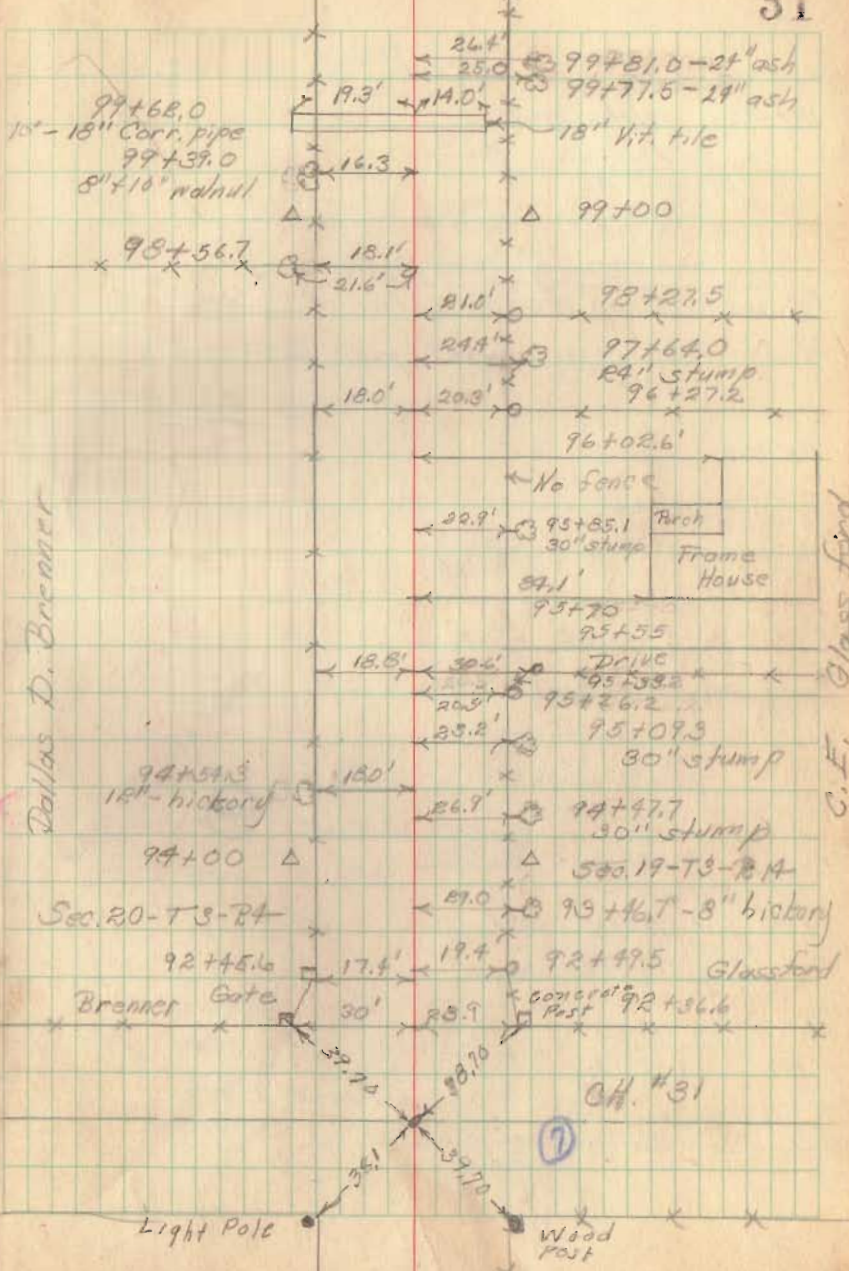 31
26.4'
99+81.0-24" ash
25.0
99+77.5-24" ash
19.3'
14.0'
99+68.0
18" Corr. pipe
18" Vit. tile
99+39.0
16.3
8"+10" walnut
△ △ 99+00
98+56.7
18.1'
21.6'
98+27.5
24.4'
97+64.0
24" stump
18.0'
20.3'
96+27.2
96+02.6'
No fence
22.9'
95+85.1
30" stump
Porch
Frame
House
95+70
95+55
18.8'
30.6'
Drive
20.5'
95+26.2
23.2'
95+09.3
30" stump
18.0'
94+54.3
18"-hickory
26.9'
94+47.7
30" stump
94+00 △ △
Sec. 19-T3-R14
Sec. 20-T3-R4
93+46.7-8" hickory
92+48.6
17.4'
19.4'
92+49.5
Glassford
Brenner
Gate
30'
23.9
concrete
Post
92+36.6
39.70
38.70
C.H. #31
7
38.1
39.70
Light Pole
Wood
Post
Dallas D. Brenner
C.E. Glassford